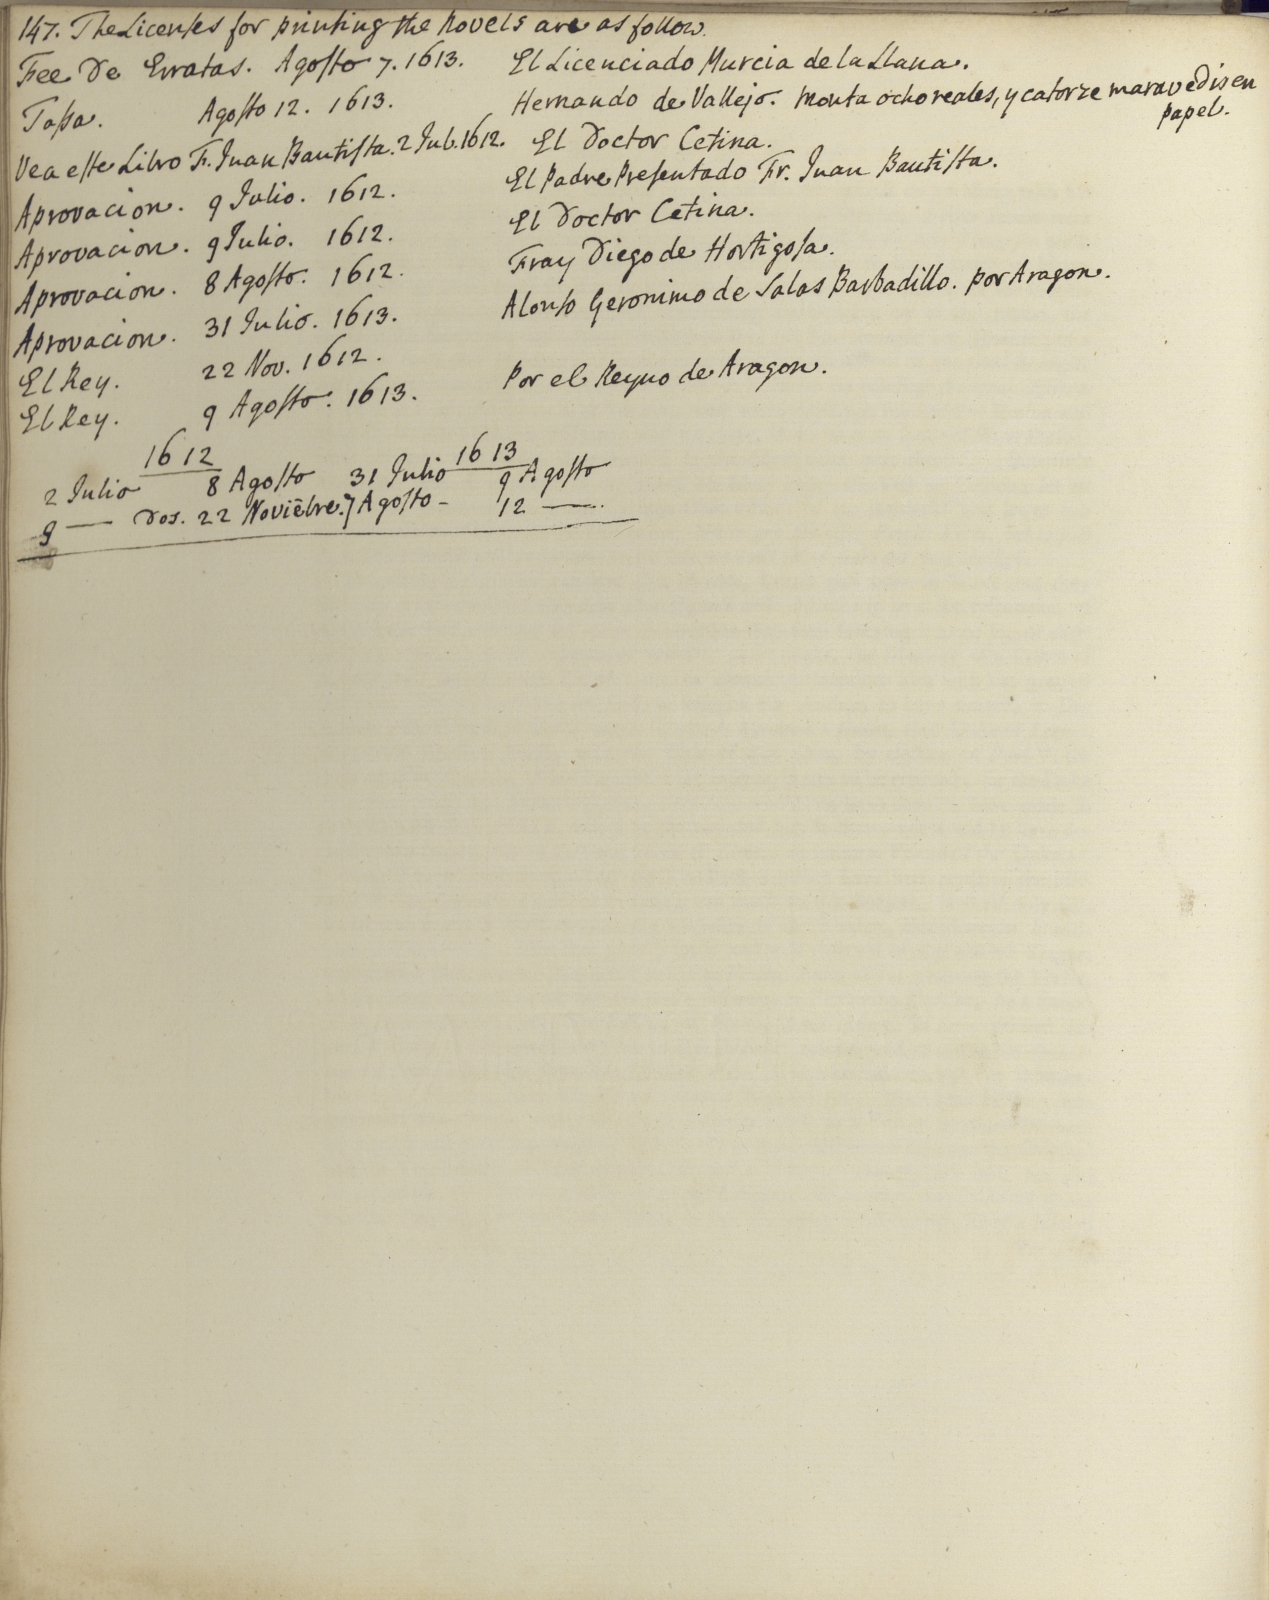 147. The Licenses for printing the Novels are as follow.
Fee De Erratas. Agosto 7. 1613. El Licenciado Murcia de la Llana.
Tassa. Agosto 12. 1613. Hernando de Vallejo. Monta ocho reales, y catorze maravedis en
papel.
Vea este Libro Fr. Juan Bautista. 2 Jul. 1612. El Doctor Cetina.
Aprovacion. 9 Julio. 1612. El Padre Presentado Fr. Juan Bautista.
Aprovacion. 9 Julio. 1612. El Doctor Cetina.
Aprovacion. 8 Agosto. 1612. Fray Diego de Hortigosa.
Aprovacion. 31 Julio. 1613. Alonso Geronimo de Salas Barbadillo. por Aragon.
El Rey. 22 Nov. 1612.
El Rey. 9 Agosto. 1613. Por el Reyno de Aragon.
1612 1613
2 Julio 8 Agosto 31 Julio 9 Agosto
9 — Dos. 22 Noviēbre. 7 Agosto - 12 —.